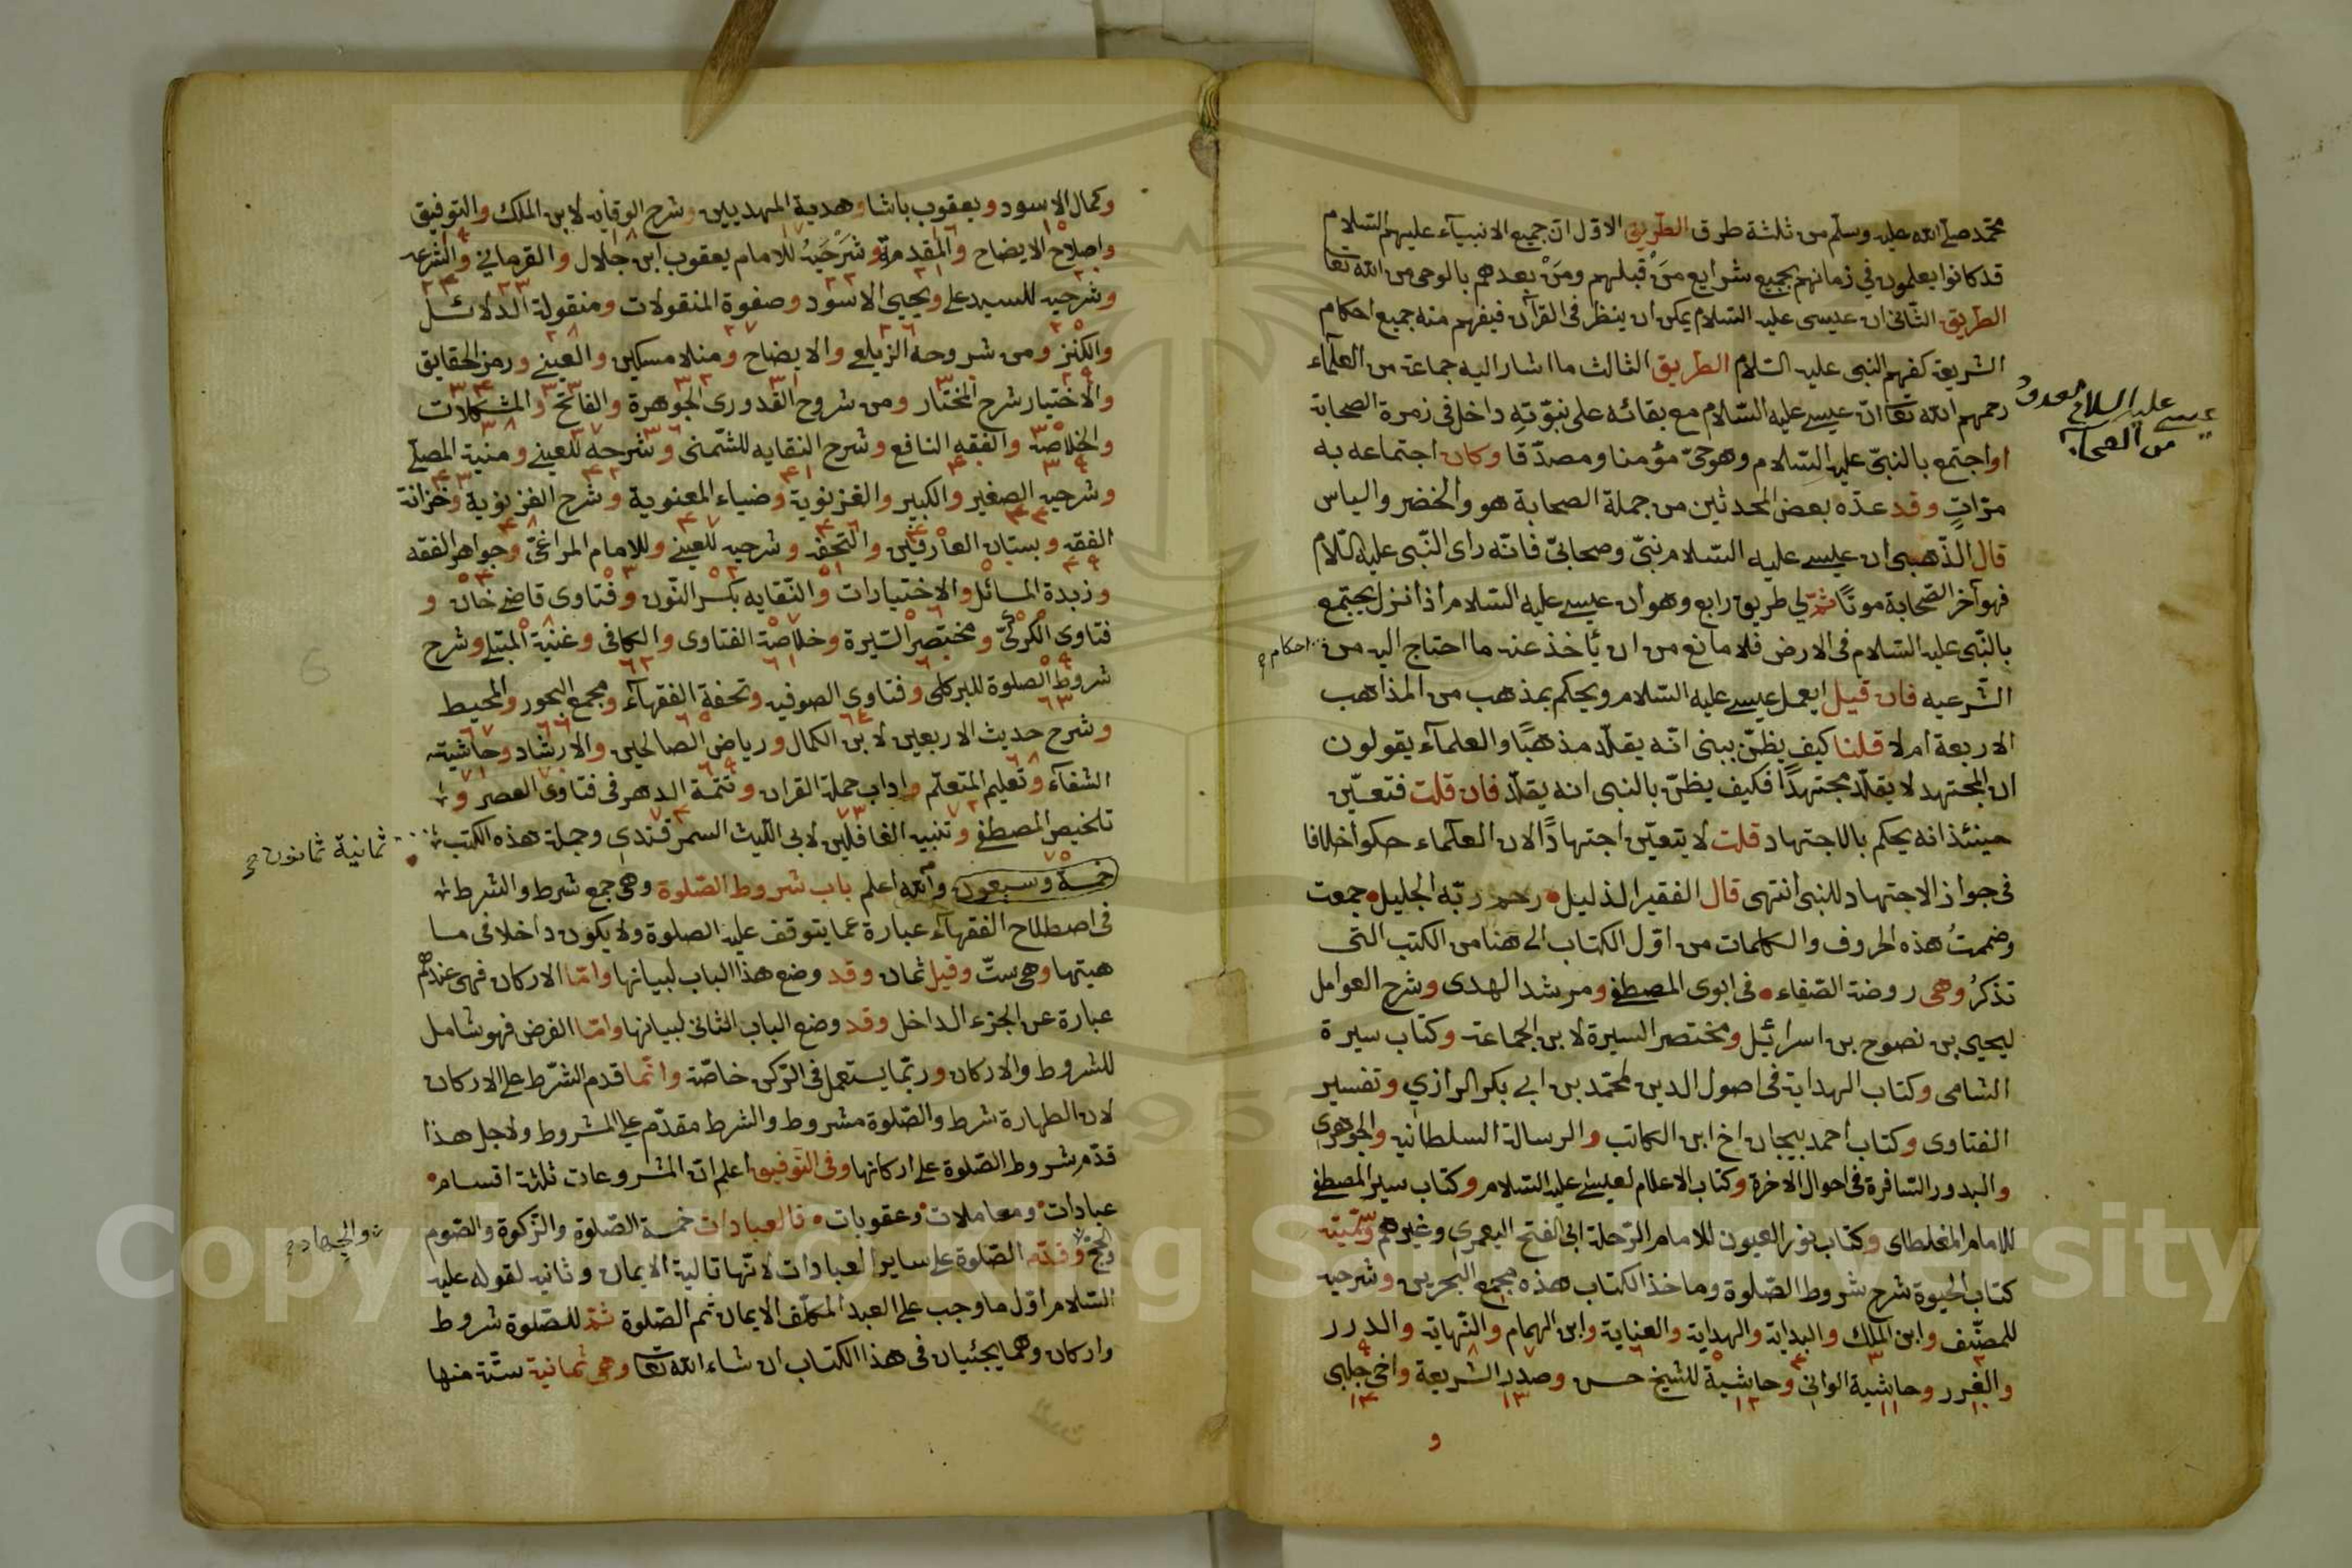 محمّد صلّى الله عليه وسلّم من ثلثة طرق الطريق الاوّل انّ جميع الانبيآء عليهم السّلام
قد كانوا يعلمون في زمانهم بجميع شرايع مَنْ قبلهم ومَنْ بعدهم بالوحى من الله تعا
الطريق الثّانى ان عيسى عليه السّلام يمكن ان ينظر فى القرآن فيفهم منه جميع احكام
الشريعة كفهم النبى عليه السّلام الطريق الثالث ما اشار اليه جماعة من العلمآء
رحمهم الله تعا انّ عيسى عليه السّلام مع بقائه على نبوّته داخل فى زمرة الصحابة
عيسى عليه السلام معدود
من الصحابة
او اجتمع بالنبىّ عليه السّلام وهو حىّ مؤمنا ومصدّقا وكان اجتماعه به
مرّاتٍ وقد عدّه بعض المحدثين من جملة الصحابة هو والخضر والياس
قال الذّهبى ان عيسى عليه السّلام نبىّ وصحابىّ فانّه راى النّبى عليه السّلام
فهو آخر الصّحابة موتًا ثمّ لي طريق رابع وهو ان عيسى عليه السّلام اذا نزل يجتمع
بالنّبى عليه السّلام فى الارض فلا مانع من ان يأخذ عنه ما احتاج اليه من
احكام
الشّرعيه فان قيل ايعمل عيسى عليه السّلام ويحكم بمذهب من المذاهب
الاربعة ام لا قلنا كيف يظنّ بنبى انّه يقلّد مذهبًا والعلمآء يقولون
ان المجتهد لا يقلّد مجتهدًا فكيف يظنّ بالنبى انه يقلّد فان قلت فتعيّن
حينئذ انه يحكم بالاجتهاد قلت لا يتعيّن اجتهادًا لان العلمآء حكوا خلافا
فى جواز الاجتهاد للنبى انتهى قال الفقير الذليل رحمه ربّه الجليل جمعت
وضممتُ هذه الحروف والكلمات من اوّل الكتاب الى هنا من الكتب التى
تذكرُ وهى روضة الصّفاء فى ابوى المصطفى ومرشد الهدى وشرح العوامل
ليحيى بن نصوح بن اسرائيل ومختصر السيرة لابن الجماعة وكتاب سيرة
الشامى وكتاب الهداية فى اصول الدين لمحمّد بن ابى بكر الرازي وتفسير
الفتاوى وكتاب احمد بيجان اخ ابن الكاتب والرسالة السلطانيه والجوهرى
والبدور السّافرة فى احوال الاخرة وكتاب الاعلام لعيسى عليه السّلام وكتاب سير المصطفى
للامام المغلطاى وكتاب نور العيون للامام الرّحلة ابى الفتح اليعمري وغيرهم وسمّيته
كتاب الحيوة شرح شروط الصّلوة وماخذ الكتاب هذه مجمع البحرين وشرحيه
للمصنّف وابن الملك والبداية والهداية والعناية وابن الهمام والنّهاية والدرر
والغرر وحاشية الوانى وحاشية للشيخ حسن وصدر الشريعة واخى جلبى
و
وكمال الاسود ويعقوب باشا وهدية المهديين وشرح الوقايه لابن الملك والتوفيق
واصلاح الايضاح والمقدمة وشَرْحَيْهِ للامام يعقوب ابن جلال والقرماني والشرعه
وشرحيه للسيد على ويحيى الاسود وصفوة المنقولات ومنقولة الدلائل
والكنز ومن شروحه الزيلعى والايضاح ومنلا مسكين والعينى ورمز الحقايق
والاختيار شرح المختار ومن شروح القدورى الجوهرة والفاتح والمشكلات
والخلاصة والفقه النافع وشرح النقايه للشّمنى وشرحه للعينى ومنية المصلى
وشرحيه الصغير والكبير والغزنوية وضياء المعنوية وشرح الغزنوية وخزانة
الفقه وبستان العارفين والتحفه وشرحيه للعينى وللامام المراغىّ وجواهر الفقه
وزبدة المسائل والاختيارات والنّقايه بكسر النّون وفتاوى قاضى خان و
فتاوى الكركىّ ومختصر السّيرة وخلاصة الفتاوى والكافى وغنية المبتلى وشرح
شروط الصلوة للبركلى وفتاوى الصوفيه وتحفة الفقهآء ومجمع البحور والمحيط
وشرح حديث الاربعين لابن الكمال ورياض الصالحين والارشاد وحاشيته
الشفآء وتعليم المتعلّم واداب حملة القران وتتمة الدهر فى فتاوى العصر و
تلخيص المصطفى وتنبيه الغافلين لابى اللّيث السمرقندى وجملة هذه الكتب
ثمانية ثمانون
خمسة وسبعون والله اعلم باب شروط الصّلوة وهى جمع شرط والشرط
فى اصطلاح الفقهآء عبارة عما يتوقف عليه الصلوة ولا يكون داخلا فى ما
هيتها وهى ستّ وقيل ثمان وقد وضع هذا الباب لبيانها وامّا الاركان فهى عندهم
عبارة عن الجزء الداخل وقد وضع الباب الثانى لبيانها وامّا الفرض فهو شامل
للشروط والاركان وربّما يستعمل فى الرّكن خاصّة وانّما قدم الشّرط على الاركان
لان الطهارة شرط والصّلوة مشروط والشرط مقدّم على المشروط ولاجل هذا
قدّم شروط الصّلوة على اركانها وفى التّوفيق اعلم انّ المشروعات ثلثة اقسام
عبادات ومعاملات وعقوبات فالعبادات خمسة الصّلوة والزّكوة والصّوم
والجهاد
والحجّ وقدّم الصّلوة على ساير العبادات لانّها تالية الايمان وثانيه لقوله عليه
السّلام اوّل ما وجب على العبد المكلّف الايمان ثم الصّلوة ثمّ للصّلوة شروط
واركان وهما يجئيان فى هذا الكتاب ان شاء الله تعا وهى ثمانية ستّة منها